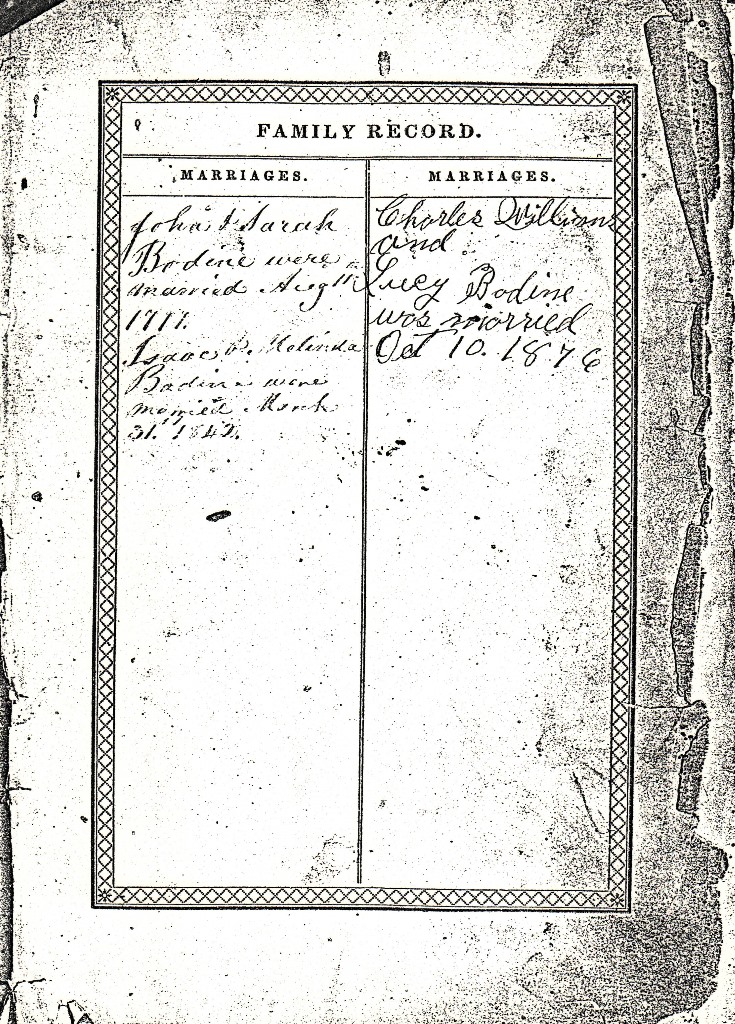 FAMILY RECORD.
MARRIAGES.
John & Sarah
Bodine were
married Aug 11
Isaac P. Malinda
Bodine were
married March
31. 1842.
MARRIAGES.
Charles Williams
and
Lucy Bodine
was married
Oct 10. 1876